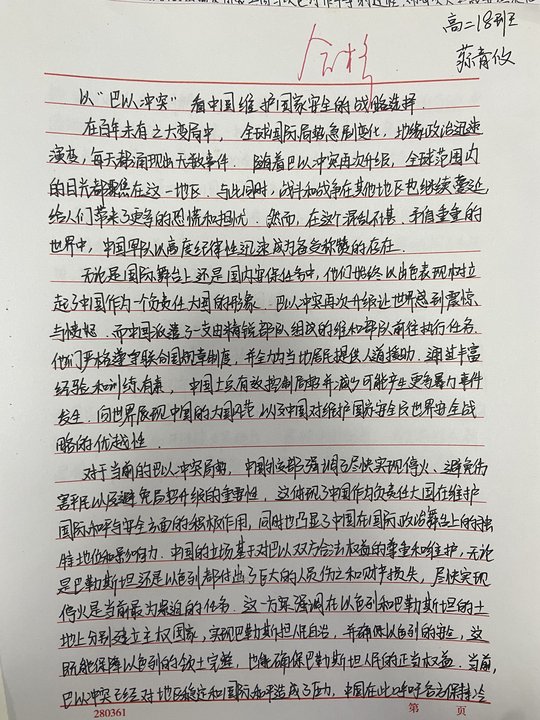 高二18班
合格
以"巴以冲突"看中国维护国家安全的战略选择.
在百年未有之大变局中，全球国际局势急剧变化，地缘政治迅速
演变，每天都涌现出无数事件．随着巴以冲突再次升级，全球范围内
的目光都聚焦在这一地区．与此同时，战斗和战争在其他地区也继续蔓延，
给人们带来了更多的恐慌和担忧．然而，在这个混乱不堪、矛盾重重的
世界中，中国军队以高度纪律性迅速成为备受称赞的存在．
无论是国际舞台上还是国内安保任务中，他们始终以出色表现树立
起了中国作为一个负责任大国的形象．巴以冲突再次升级让世界感到震惊
与愤怒．而中国派遣了一支由精锐部队组成的维和部队前往执行任务．
他们严格遵守联合国规章制度，并全力为当地居民提供人道援助．通过丰富
经验和训练有素，中国士兵有效控制局势并减少可能产生更多暴力事件
发生．向世界展现中国的大国风范以及中国对维护国家安全及世界安全战
略的优越性．
对于当前的巴以冲突局势，中国外交部强调了尽快实现停火、避免伤
害平民以及避免局势升级的重要性，这体现了中国作为负责任大国在维护
国际和平与安全方面的积极作用，同时也凸显了中国在国际政治舞台上的独
特地位和影响力．中国的立场基于对巴以双方合法权益的尊重和维护，无论
是巴勒斯坦还是以色列都付出了巨大的人员伤亡和财产损失，尽快实现
停火是当前最为紧迫的任务．这一方案强调在以色列和巴勒斯坦的土
地上分别建立主权国家，实现巴勒斯坦人民自治，并确保以色列的安全，这
既能保障以色列的领土完整，也能确保巴勒斯坦人民的正当权益．当前，
巴以冲突已经对地区稳定和国际和平造成了压力，中国在此呼吁各方保持冷
280361
第 页